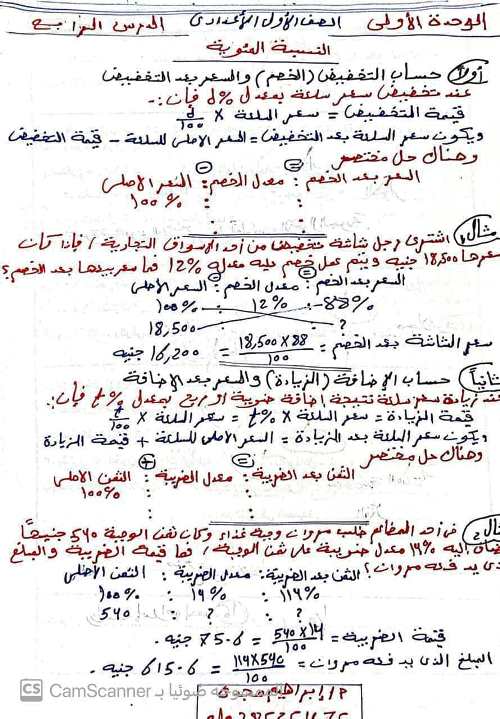 الوحدة الأولى الصف الأول الإعدادى الدرس الرابع
النسبة المئوية
أولاً حساب التخفيض (الخصم) والسعر بعد التخفيض
عند تخفيض سعر سلعة بمعدل d% فإن:-
قيمة التخفيض = سعر السلعة × d/100
ويكون سعر السلعة بعد التخفيض = السعر الأصلى للسلعة - قيمة التخفيض
وهناك حل مختصر
السعر بعد الخصم : معدل الخصم : السعر الأصلى
: : 100%
مثال1 اشترى رجل شاشة تخفيض من أحد الأسواق التجارية / فإذا كان
سعرها 18,500 جنيه ويتم عمل خصم عليه معدله 12% فما سعر بيعها بعد الخصم؟
السعر بعد الخصم : معدل الخصم : السعر الأصلى
88% : 12% : 100%
? : 18,500
سعر الشاشة بعد الخصم = 18,500×88/100 = 16,200 جنيه
ثانياً حساب الإضافة (الزيادة) والسعر بعد الإضافة
عند زيادة سعر سلعة نتيجة إضافة ضريبة أو ربح بمعدل t% فإن:
قيمة الزيادة = سعر السلعة × t% = سعر السلعة × t/100
ويكون سعر السلعة بعد الزيادة = السعر الأصلى للسلعة + قيمة الزيادة
وهناك حل مختصر
الثمن بعد الضريبة : معدل الضريبة : الثمن الأصلى
: : 100%
مثال2 فى أحد المطاعم طلب مروان وجبة غذاء وكان ثمن الوجبة 540 جنيهاً
يضاف إليه 14% معدل ضريبة على ثمن الوجبة / فما قيمة الضريبة والمبلغ
الذى يدفعه مروان؟ الثمن بعد الضريبة : معدل الضريبة : الثمن الأصلى
114% : 14% : 100%
? : ? : 540
قيمة الضريبة = 540×14/100 = 75.6 جنيه.
المبلغ الذى يدفعه مروان = 114×540/100 = 615.6 جنيه.
أ/ إبراهيم مجدى
CS الممسوحة ضوئيا بـ CamScanner